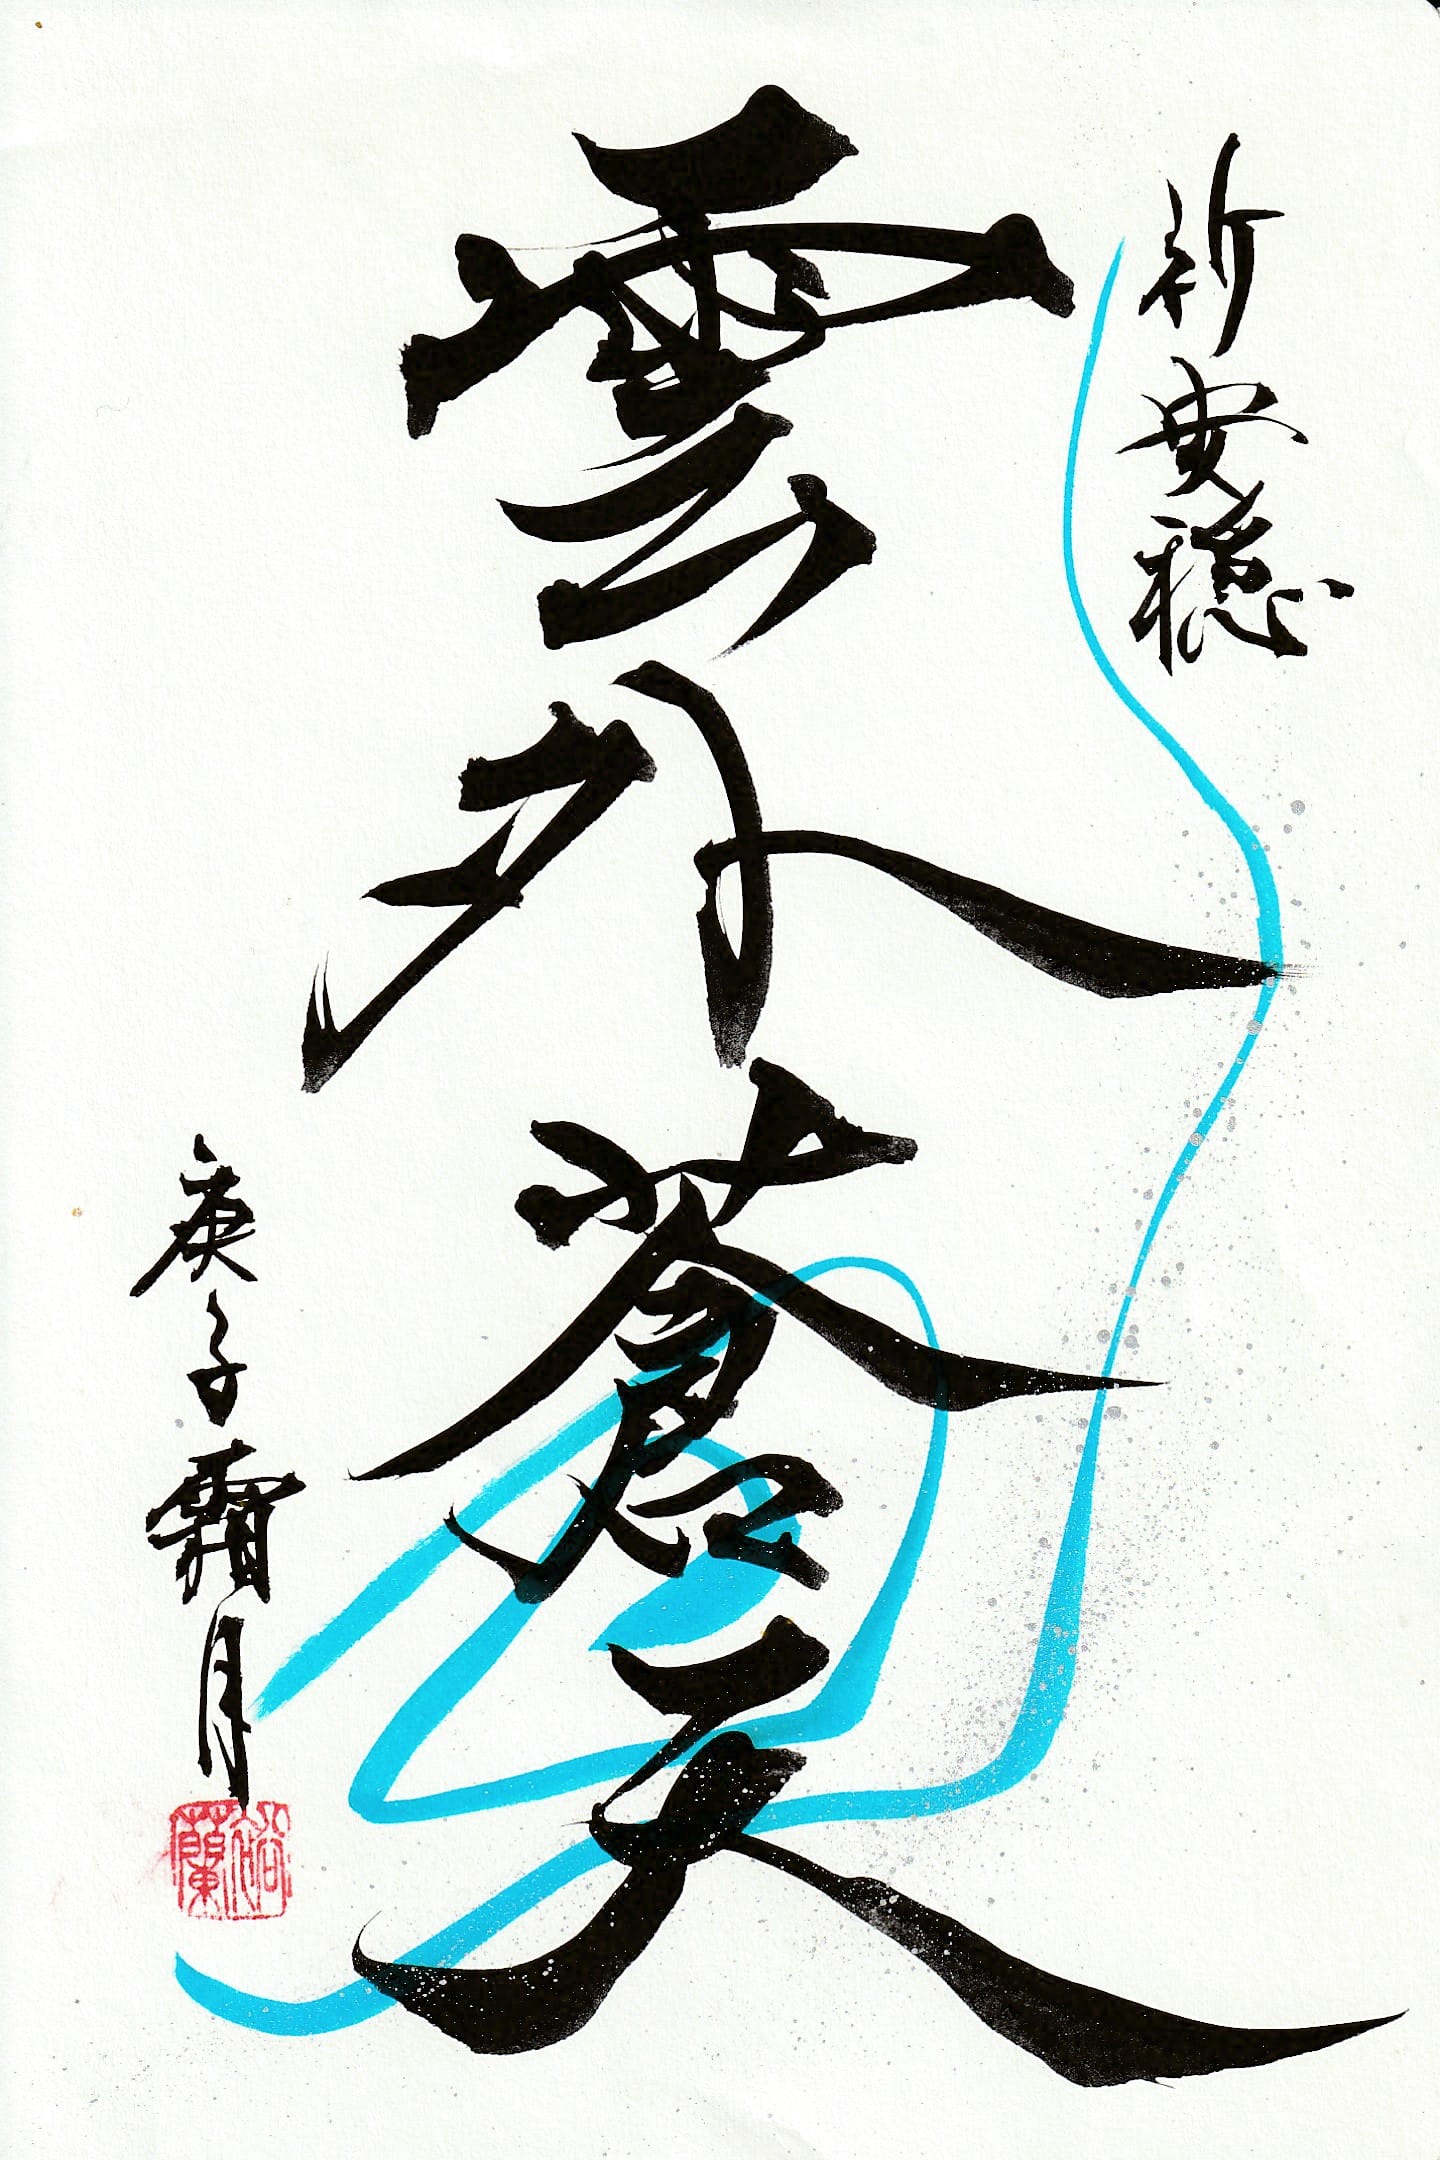 祈安穏
雲外蒼天
庚子霜月